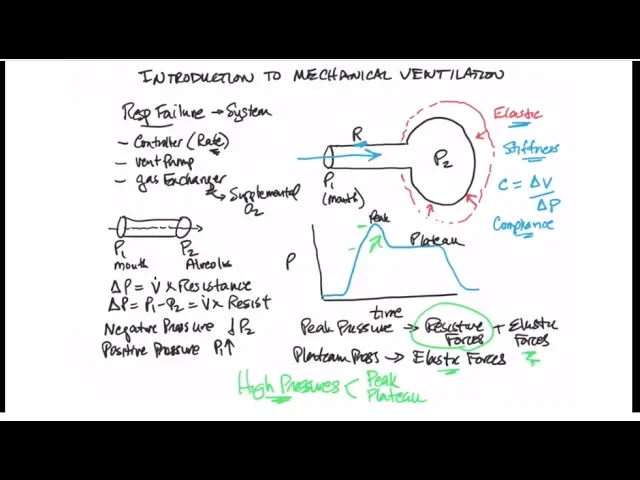 INTRODUCTION TO MECHANICAL VENTILATION
Resp Failure → System
- Controller (Rate)
- vent Pump
- gas Exchanger
→ Supplemental
O2
P1 P2
mouth Alveolus
ΔP = V̇ x Resistance
ΔP = P1 - P2 = V̇ x Resist
Negative Pressure ↓P2
Positive Pressure P1↑
R
P1
(mouth)
P2
Elastic
Stiffness
C = ΔV
ΔP
Compliance
Peak
Plateau
P
time
Peak Pressure → Resistive Forces + Elastic Forces
Plateau Press → Elastic Forces
High Pressures < Peak
Plateau